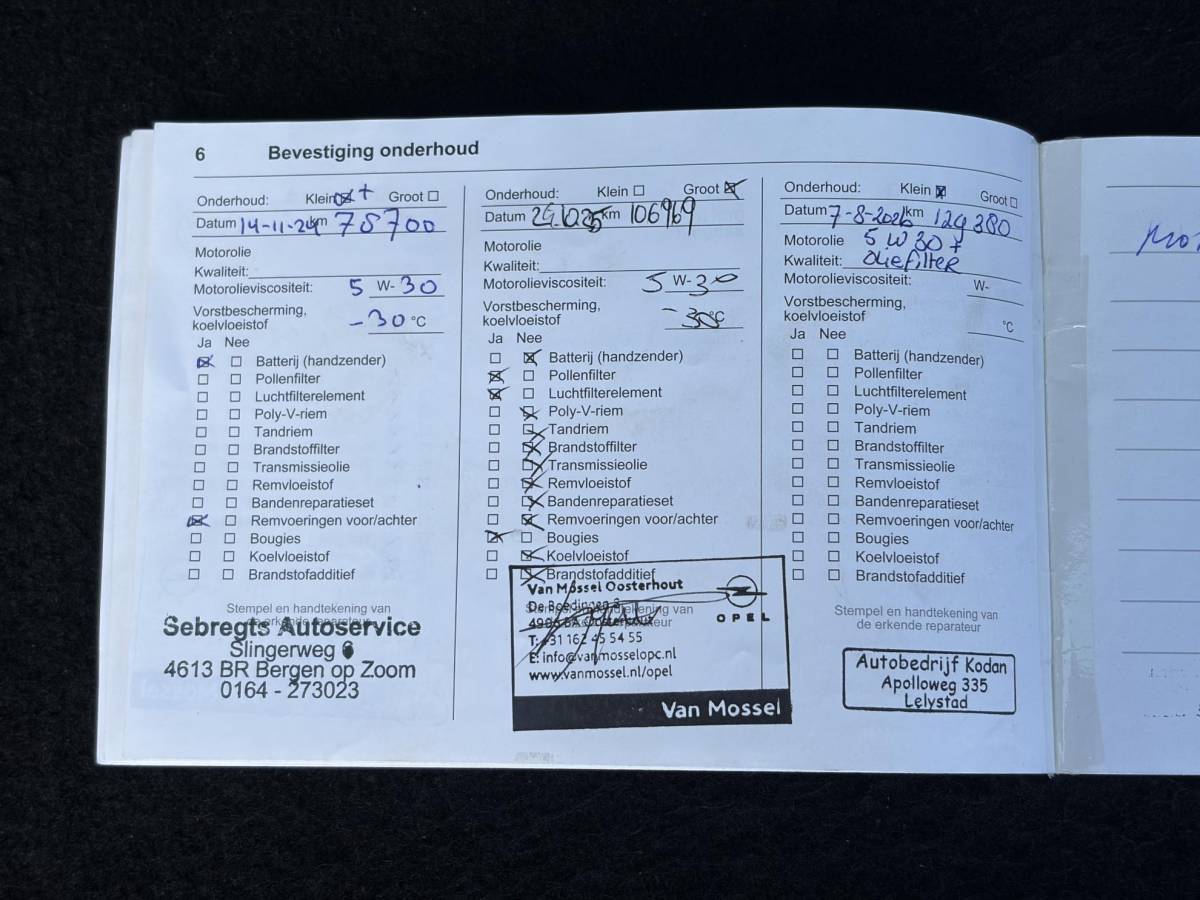 6 Bevestiging onderhoud
Onderhoud: Klein + Groot
Datum 14-11-24 km 78700
Motorolie
Kwaliteit:
Motorolieviscositeit: 5 W- 30
Vorstbescherming,
koelvloeistof -30 °C
Ja Nee
Batterij (handzender)
Pollenfilter
Luchtfilterelement
Poly-V-riem
Tandriem
Brandstoffilter
Transmissieolie
Remvloeistof
Bandenreparatieset
Remvoeringen voor/achter
Bougies
Koelvloeistof
Brandstofadditief
Stempel en handtekening van
de erkende reparateur
Sebregts Autoservice
Slingerweg 6
4613 BR Bergen op Zoom
0164 - 273023
Onderhoud: Klein Groot
Datum km 106969
Motorolie
Kwaliteit:
Motorolieviscositeit: 5 W-30
Vorstbescherming,
koelvloeistof -30°C
Ja Nee
Batterij (handzender)
Pollenfilter
Luchtfilterelement
Poly-V-riem
Tandriem
Brandstoffilter
Transmissieolie
Remvloeistof
Bandenreparatieset
Remvoeringen voor/achter
Bougies
Koelvloeistof
Brandstofadditief
Stempel en handtekening van
Van Mossel Oosterhout
OPEL
T: +31 162 45 54 55
E: info@vanmosselopc.nl
www.vanmossel.nl/opel
Van Mossel
Onderhoud: Klein Groot
Datum 7-8-2026 km 129380
Motorolie 5 W 30 +
Kwaliteit: oliefilter
Motorolieviscositeit: W-
Vorstbescherming,
koelvloeistof °C
Ja Nee
Batterij (handzender)
Pollenfilter
Luchtfilterelement
Poly-V-riem
Tandriem
Brandstoffilter
Transmissieolie
Remvloeistof
Bandenreparatieset
Remvoeringen voor/achter
Bougies
Koelvloeistof
Brandstofadditief
Stempel en handtekening van
de erkende reparateur
Autobedrijf Kodan
Apolloweg 335
Lelystad